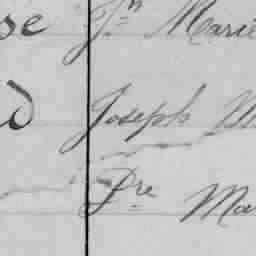 se Jⁿ Marie
d Joseph M
Pre Ma